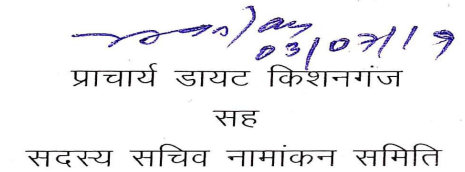 03/07/19
प्राचार्य डायट किशनगंज
सह
सदस्य सचिव नामांकन समिति